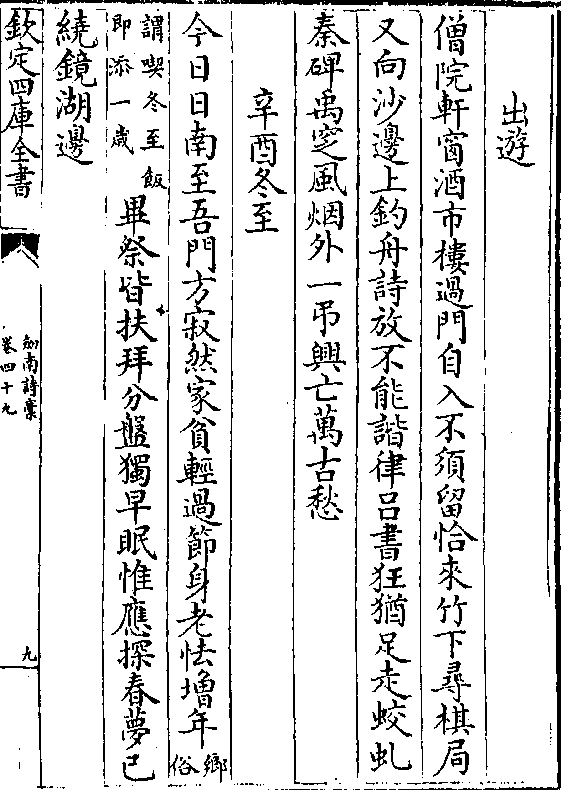 出遊
僧院軒窗酒市樓過門自入不須留恰來竹下尋棋局
又向沙邊上釣舟詩放不能諧律呂書狂猶足走蛟虬
秦碑禹窆風烟外一弔興亡萬古愁
辛酉冬至
今日日南至吾門方寂然家貧輕過節身老怯增年鄉俗
謂喫冬至飯即添一歳畢祭皆扶拜分盤獨早眠惟應探春夢已
繞鏡湖邊
欽定四庫全書
劍南詩稾
卷四十九
九